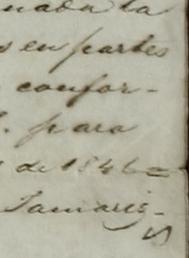 nada la
s en partes
confor-
para
de 1846=
Tamariz-